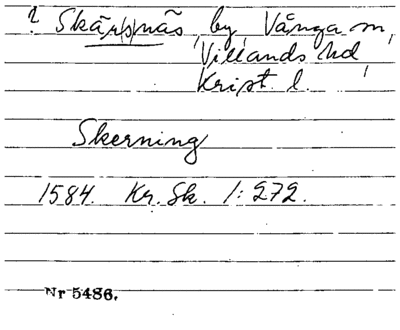 ? Skär(s)näs, by, Vånga sn,
Villands hd,
Krist. l.
Skerning
1584. Kr. Sk. 1:272.
Nr 5486.